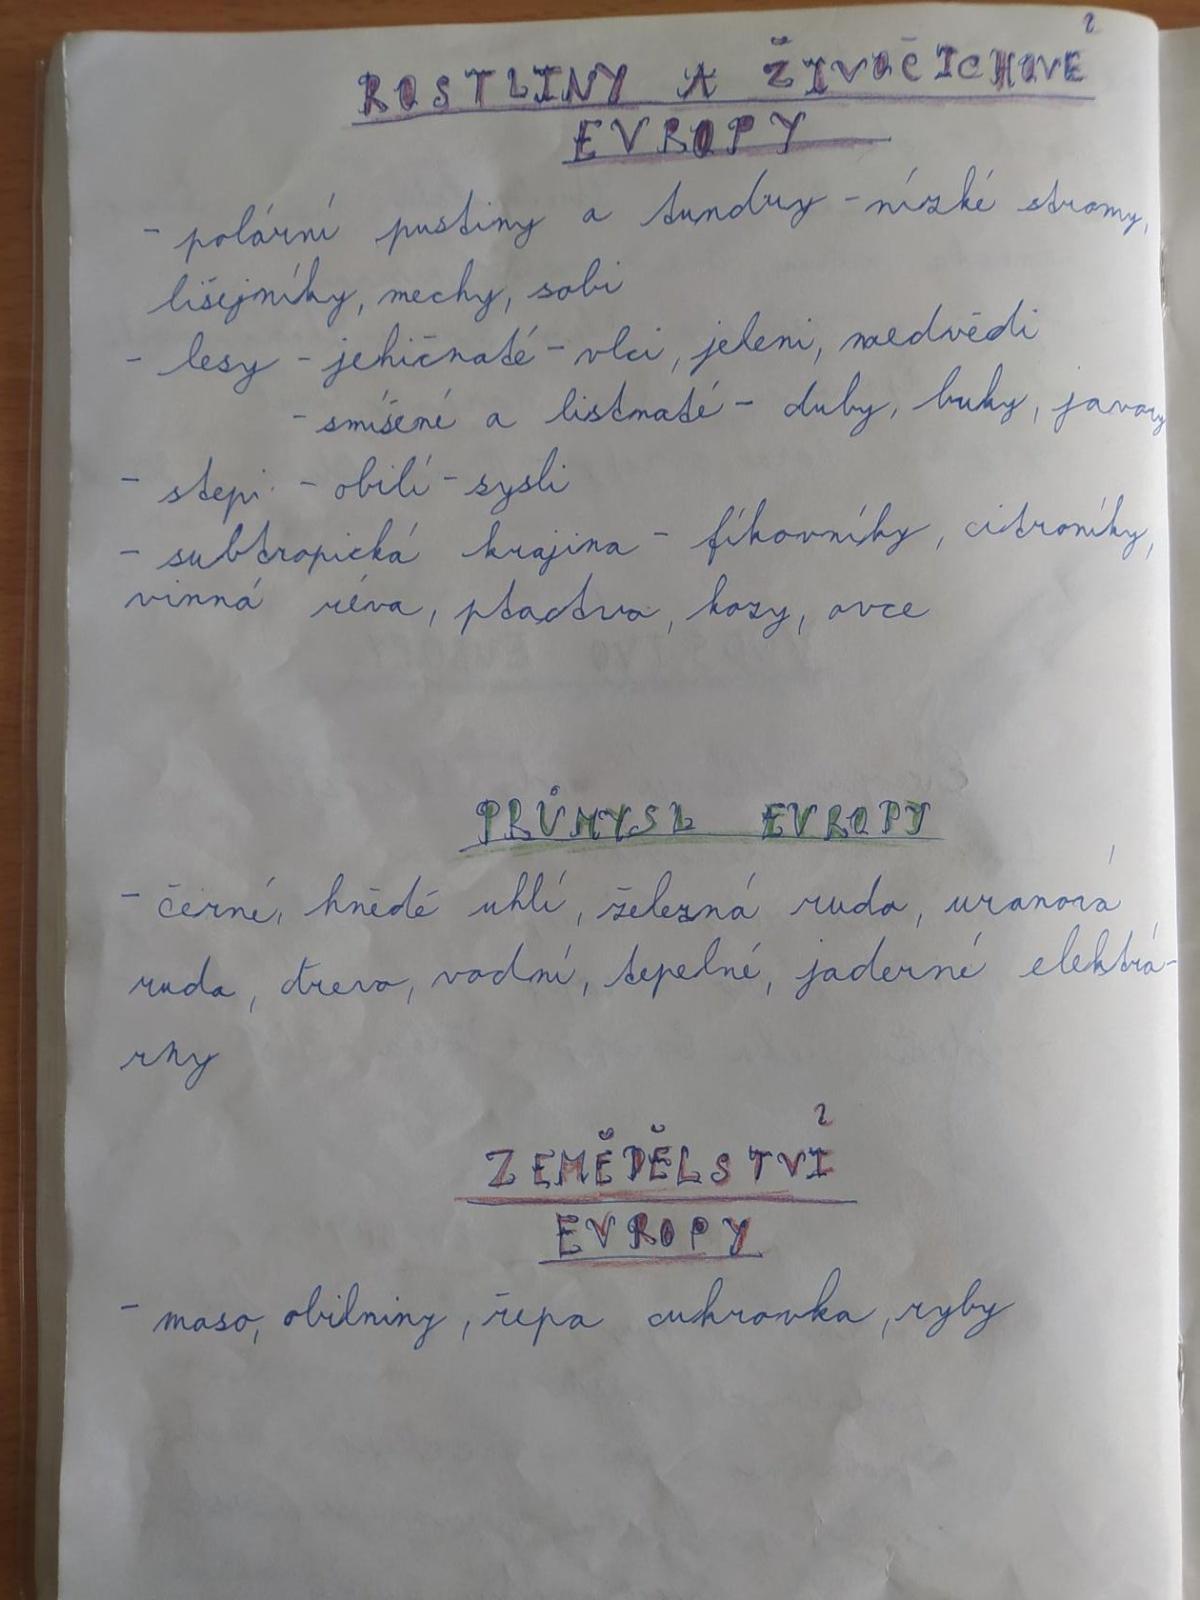 ROSTLINY A ŽIVOČICHOVÉ
EVROPY
- polární pustiny a tundry - nízké stromy,
lišejníky, mechy, sobi
- lesy - jehičnaté - vlci, jeleni, medvědi
- smíšené a listnaté - duby, buky, javory
- stepi - obilí - sysli
- subtropická krajina - fíkovníky, citroníky,
vinná réva, ptactvo, kozy, ovce
PRŮMYSL EVROPY
- černé, hnědé uhlí, železná ruda, uranová
ruda, dřevo, vodní, tepelné, jaderné elektrá-
rny
ZEMĚDĚLSTVÍ
EVROPY
- maso, obilniny, řepa cukrovka, ryby